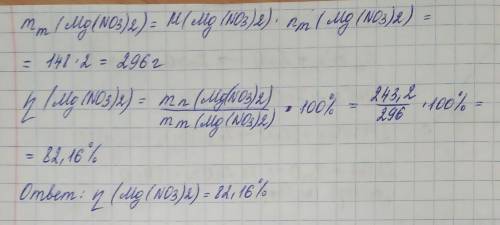 mт (Mg(NO3)2) = M(Mg(NO3)2) · nт(Mg(NO3)2) =
= 148 · 2 = 296 г
η (Mg(NO3)2) = mп (Mg(NO3)2) / mт (Mg(NO3)2) · 100% = 243,2 / 296 · 100% =
= 82,16%
Ответ: η (Mg(NO3)2) = 82,16%